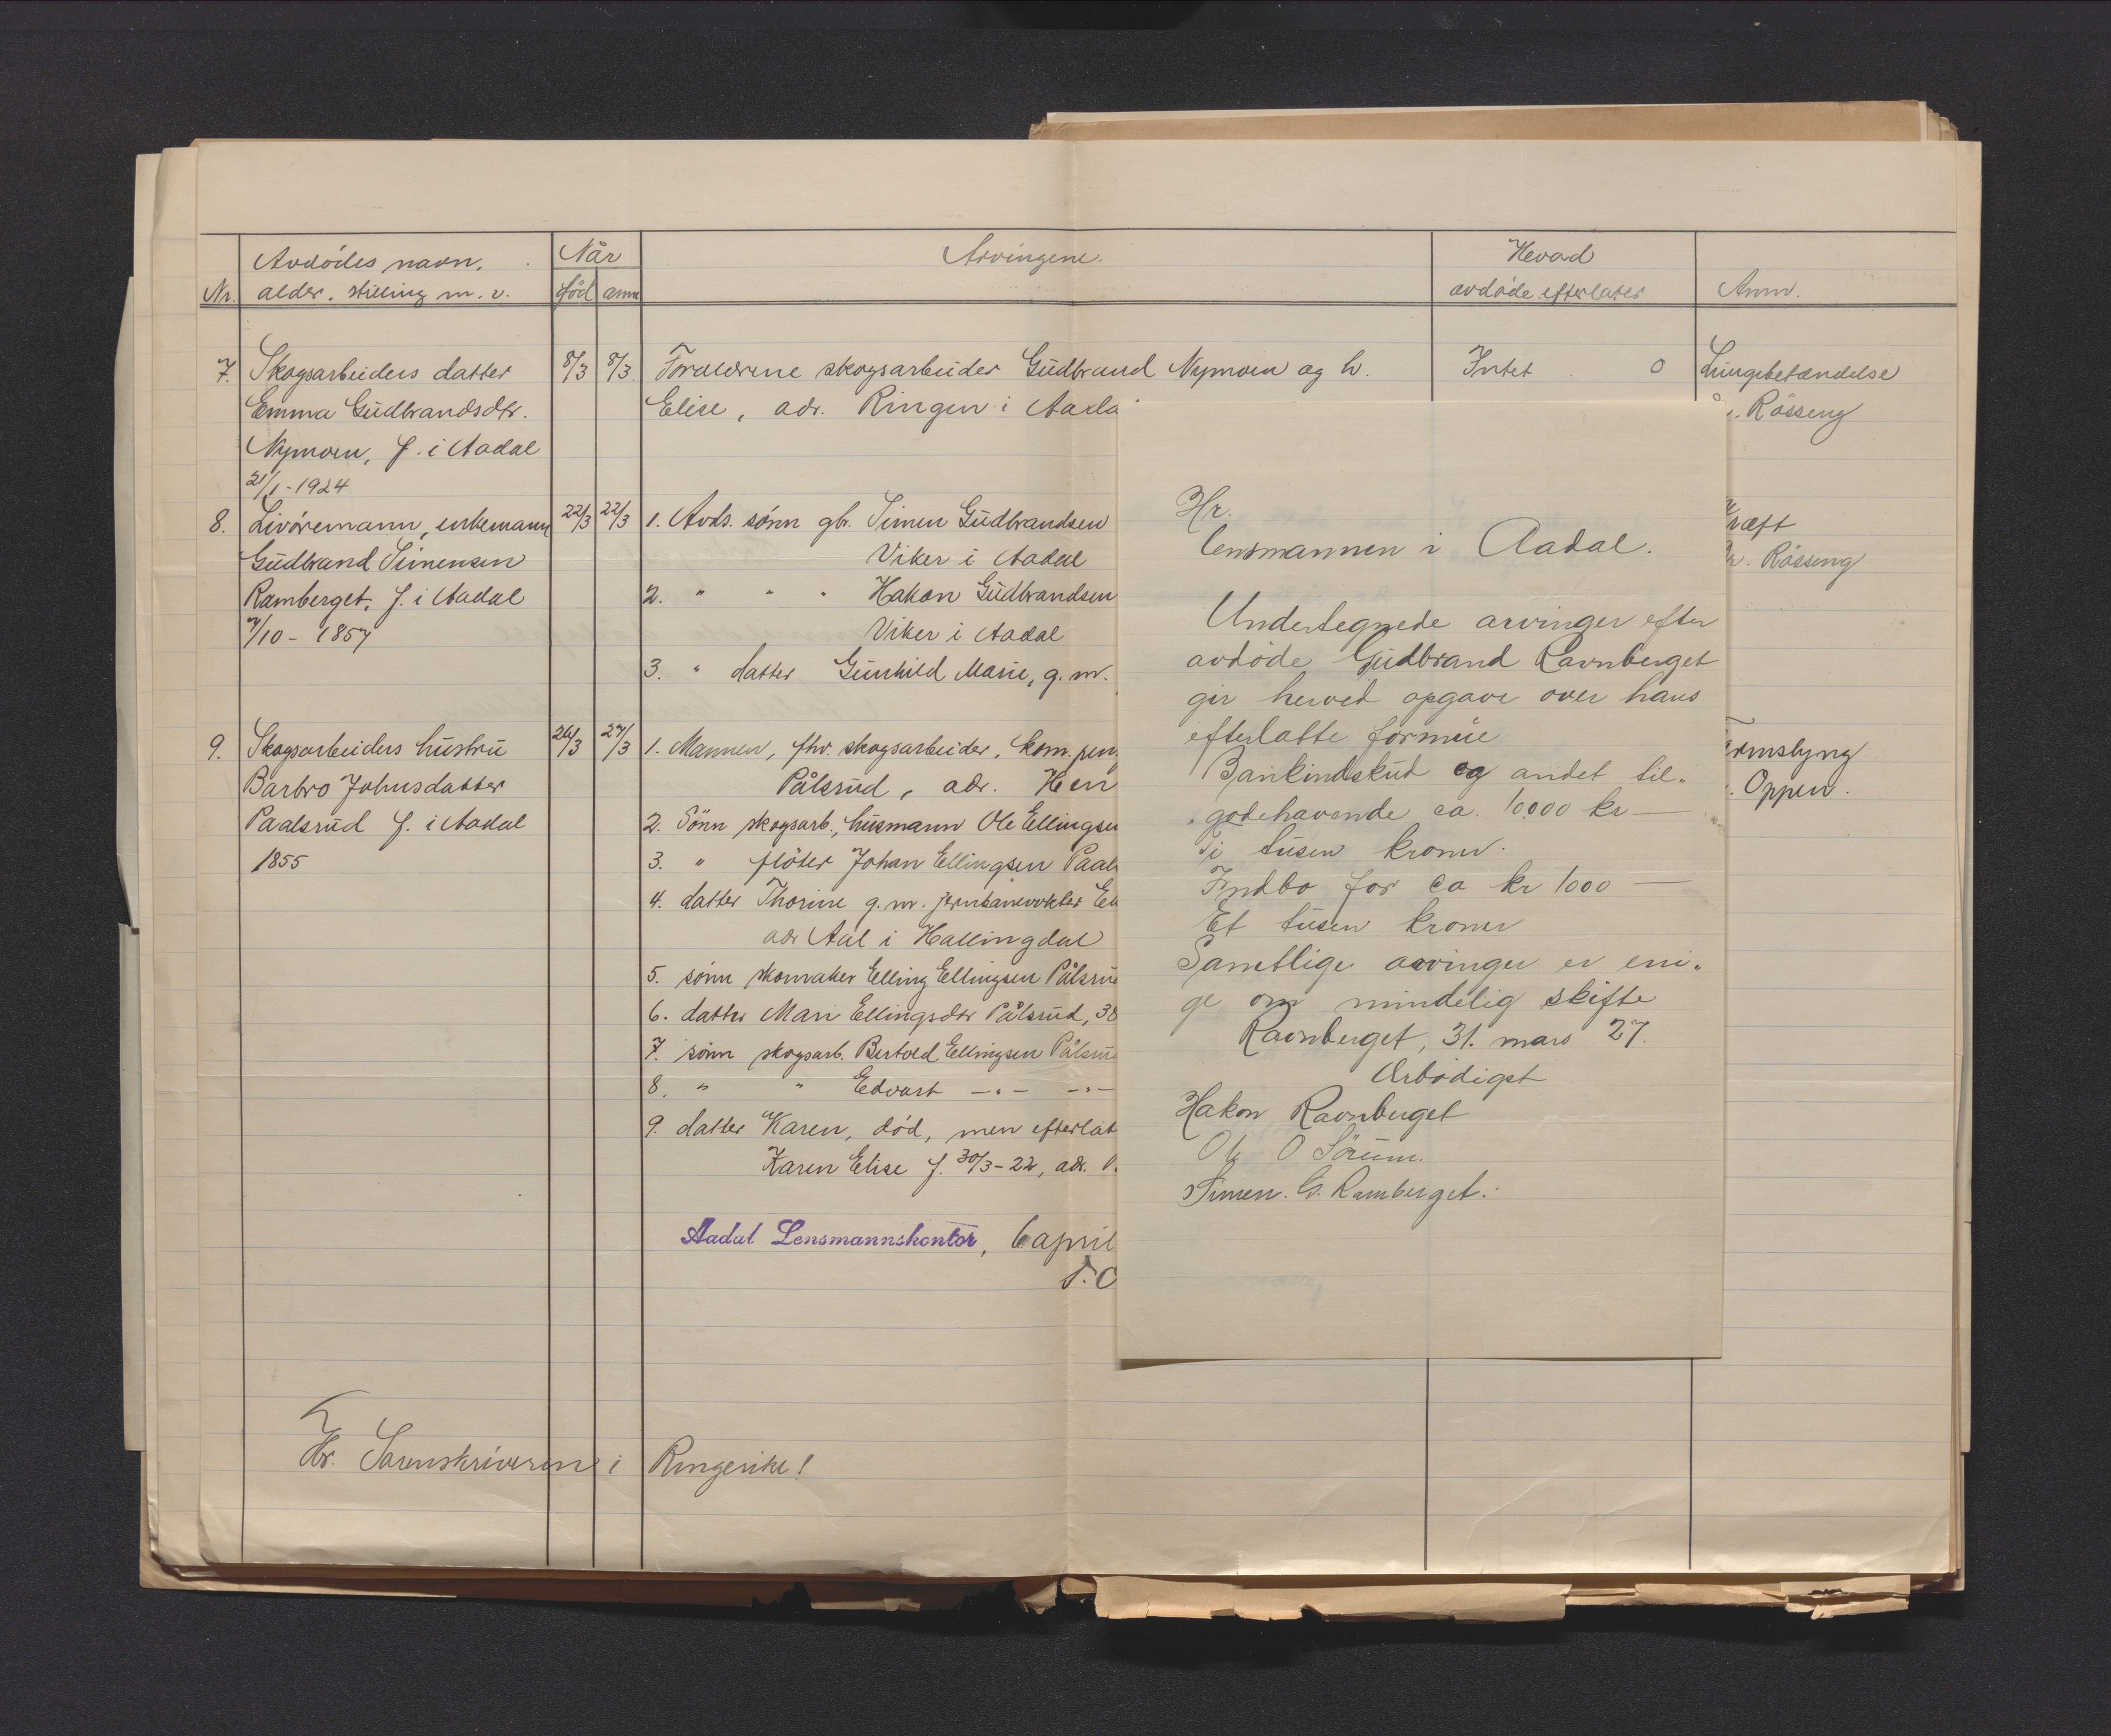 Avdødes navn,
alder, stilling m. v.
Nr.
Når
død
anm
Arvingene.
Hevad
avdøde efterlater
Anm.
7. Skogsarbeiders datter
Emma Gudbrandsdtr.
Nymoen, f. i Aadal
21/1-1924
8/3 8/3
Forældrene skogsarbeider Gudbrand Nymoen og h.
Elise, adr. Ringen i Aadal
Intet 0
Lungebetændelse
Røsseng
8. Livøremann, enkemann
Gudbrand Simensen
Ramberget, f. i Aadal
7/10 - 1857
22/3 22/3
1. Avds. sønn gbr. Simen Gudbrandsen
Viker i Aadal
2. " " " Hakon Gudbrandsen
Viker i Aadal
3. " datter Gunhild Marie, g. m.
ræft
Dr. Røsseng
9. Skogsarbeiders hustru
Barbro Johnsdatter
Paalsrud f. i Aadal
1855
26/3 27/3
1. Mannen, fhv. skogsarbeider, kom. pen
Pålsrud, adr. Hen
2. Sønn skogsarb., husmann Ole Ellingsen
3. " fløter Johan Ellingsen Paal
4. datter Thorine g. m. jernbanevokter El
adr Aal i Hallingdal
5. sønn skomaker Elling Ellingsen Pålsru
6. datter Mari Ellingsdtr Pålsrud, 38
7. sønn skogsarb. Bertold Ellingsen Pålsru
8. " " Edvart -"- -"-
9. datter Karen, død, men efterlat
Karen Elise f. 30/3-22, adr.
rmslyng
Oppen.
Aadal Lensmannskontor, 6 april
Hr. Sorenskriveren i Ringerike!
Hr.
lensmannen i Aadal.
Undertegnede arvinger efter
avdøde Gudbrand Ravnberget
gir herved opgave over hans
efterlatte formue
Bankindskud og andet til„
„godehavende ca. 10.000 kr —
Ti tusen kroner.
Indbo for ca kr 1000 —
Et tusen kroner
Samtlige arvinger er eni„
ge om mindelig skifte
Ravnberget, 31. mars 27.
Ærbødigst
Hakon Ravnberget
Ole O Sørum.
Simen. G. Ramberget.